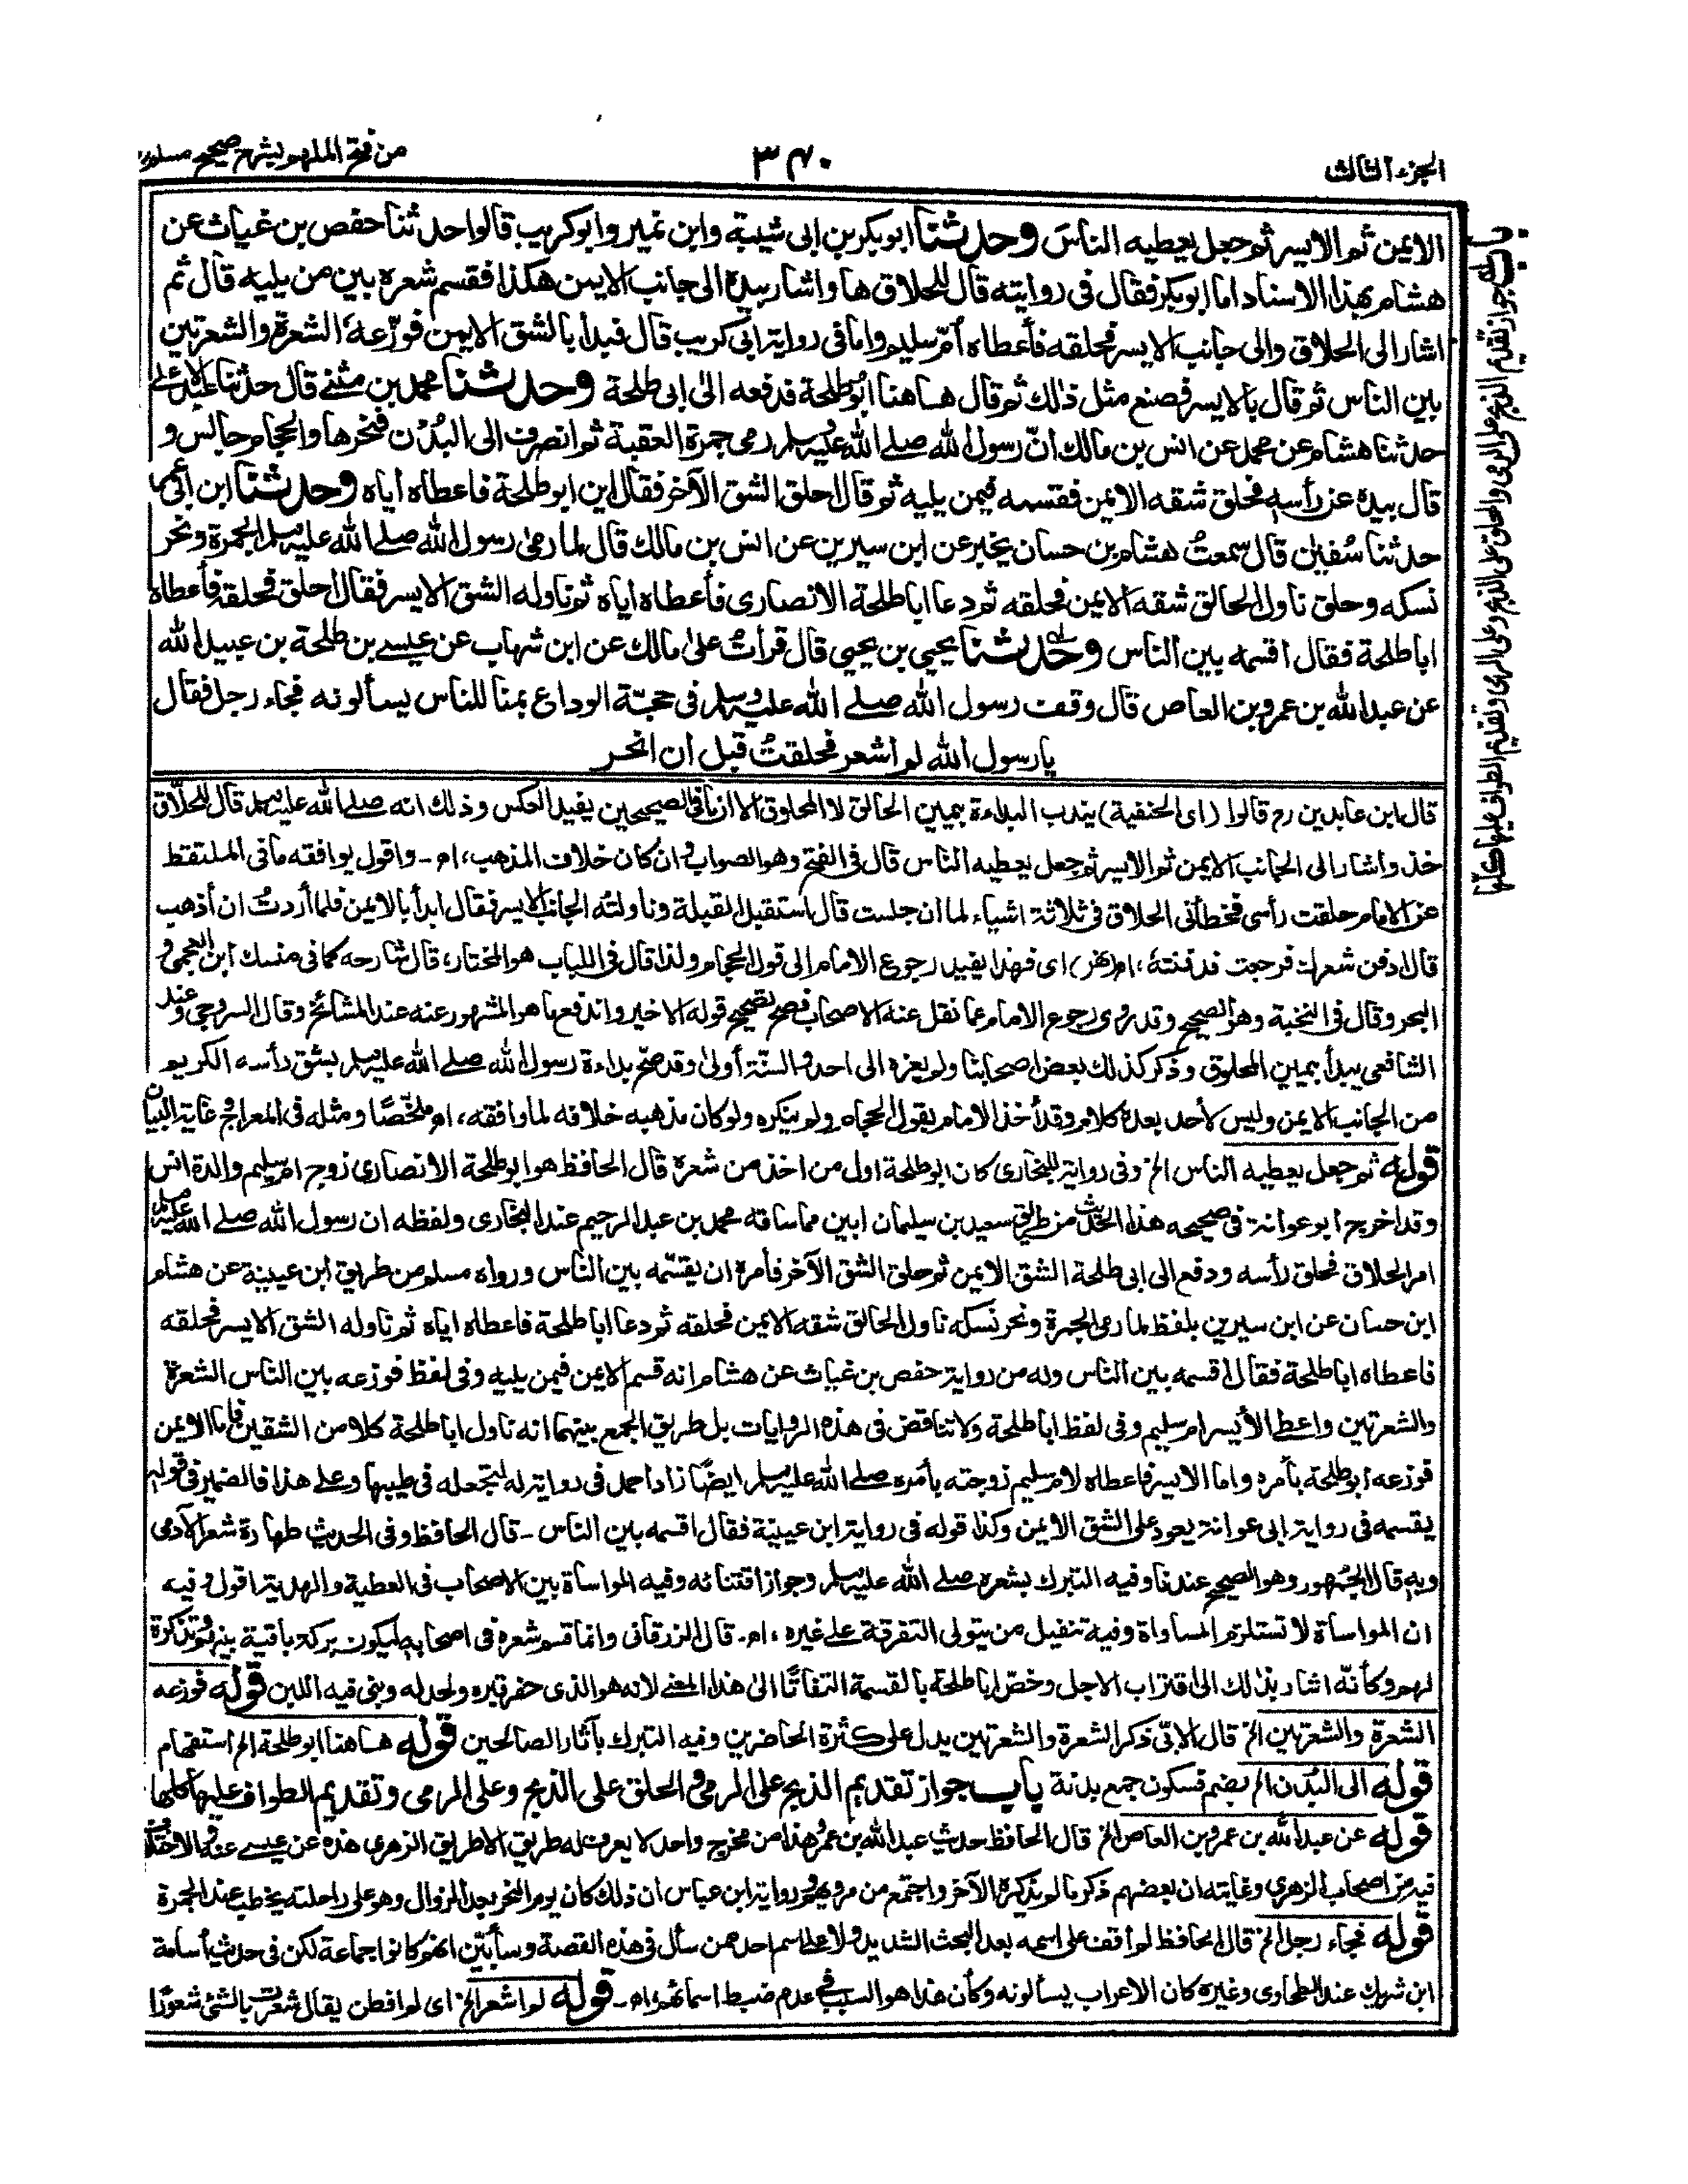 الجزء الثالث
٣٤٠
من فتح الملهم بشرح صحيح مسلم
باب جواز تقديم الذبح على الرمى والحلق على الذبح وعلى الرمى وتقديم الطواف عليها كلها
الايمن ثم الايسر ثم جعل يعطيه الناسَ وحدثنا ابوبكر بن ابى شيبة وابن نمير وابوكريب قالوا حدثنا حفص بن غياث عن
هشام بهذا الاسناد اما ابوبكر فقال فى روايته قال للحلاق ها واشار بيده الى جانب الايمن هكذا فقسم شعره بين من يليه قال ثم
اشار الى الحلاق والى جانب الايسر فحلقه فأعطاه أمّ سليم واما فى رواية ابى كريب قال فبدأ بالشق الايمن فوزّعه الشعرة والشعرتين
بين الناس ثم قال بالايسر فصنع مثل ذٰلك ثم قال هاهنا ابوطلحة فدفعه الىٰ ابى طلحة وحدثنا محمد بن مثنے قال حدثنا عبد الاعلى
حدثنا هشام عن محمد عن انس بن مالك انّ رسول الله صلے الله عليه وسلم رمى جمرة العقبة ثم انصرف الى البُدْن فنحرها والحجام جالس و
قال بيده عن رأسه فحلق شقه الايمن فقسمه فيمن يليه ثم قال احلق الشق الآخر فقال اين ابوطلحة فاعطاه اياه وحدثنا ابن ابى عمر
حدثنا سُفيٰن قال سمعتُ هشام بن حسان يخبر عن ابن سيرين عن انس بن مالك قال لما رمىٰ رسول الله صلے الله عليه وسلم الجمرة ونحر
نسكه وحلق ناول الحالق شقه الايمن فحلقه ثم دعا اباطلحة الانصارى فأعطاه اياه ثم ناوله الشق الايسر فقال احلق فحلقه فأعطاه
اباطلحة فقال اقسمه بين الناس وحدثنا يحيى بن يحيى قال قرأتُ علىٰ مالك عن ابن شهاب عن عيسے بن طلحة بن عبيد الله
عن عبد الله بن عمرو بن العاص قال وقف رسول الله صلے الله عليه وسلم فى حجّة الوداع بمنا للناس يسألونه فجاء رجل فقال
يا رسول الله لم أشعر فحلقتُ قبل ان انحر
قال ابن عابدين رح قالوا (اى الحنفية) يندب البداءة بيمين الحالق لا المحلوق الا ان ما فى الصحيحين يفيد العكس وذلك انه صلے الله عليه وسلم قال للحلّاق
خذ واشار الى الجانب الايمن ثم الايسر ثم جعل يعطيه الناس قال فى الفتح وهو الصواب وان كان خلاف المذهب، اه - واقول يوافقه ما فى الملتقط
عن الامام حلقت رأسى فخطأنى الحلاق فى ثلاثة اشياء لما ان جلست قال استقبل القبلة وناولتُه الجانب الايسر فقال ابدأ بالايمن فلما أردتُ ان أذهب
قال ادفن شعرك فرجعت فدفنتهٗ، اه (نهر) اى فهذا يفيد رجوع الامام الى قول الحجام ولذا قال فى اللباب هو المختار، قال شارحه كما فى منسك ابن العجمى و
البحر وقال فى النخبة وهو الصحيح وقد روى رجوع الامام عما نقل عنه الاصحاب فصح تصحيح قوله الاخير واندفع ما هو المشهور عنه عند المشائخ وقال السروجى وعند
الشافعى يبدأ بيمين المحلوق وذكر كذلك بعض اصحابنا ولم يعزه الى احد والسنّة أولىٰ وقد صحّ بداءة رسول الله صلے الله عليه وسلم بشق رأسه الكريم
من الجانب الايمن وليس لأحد بعده كلام وقد أخذ الامام بقول الحجام ولم ينكره ولو كان مذهبه خلافه لما وافقه، اه ملخّصًا ومثله فى المعراج وغاية البيان
قوله ثم جعل يعطيه الناس الخ وفى رواية للبخارى كان ابوطلحة اول من اخذ من شعره قال الحافظ هو ابوطلحة الانصارى زوج ام سليم والدة انس
وقد اخرج ابوعوانة فى صحيحه هذا الحديث من طريق سعيد بن سليمان ابين مما ساقه محمد بن عبد الرحيم عند البخارى ولفظه ان رسول الله صلے الله عليه وسلم
امر الحلاق فحلق رأسه ودفع الى ابى طلحة الشق الايمن ثم حلق الشق الآخر فأمره ان يقسّمه بين الناس ورواه مسلم من طريق ابن عيينة عن هشام
ابن حسان عن ابن سيرين بلفظ لما رمى الجمرة ونحر نسكه ناول الحالق شقه الايمن فحلقه ثم دعا اباطلحة فاعطاه اياه ثم ناوله الشق الايسر فحلقه
فاعطاه اباطلحة فقال اقسمه بين الناس وله من رواية حفص بن غياث عن هشام انه قسم الايمن فيمن يليه وفى لفظ فوزعه بين الناس الشعرة
والشعرتين واعطى الأيسر ام سليم وفى لفظ اباطلحة ولا تناقض فى هذه الروايات بل طريق الجمع بينهما انه ناول اباطلحة كلا من الشقين فاما الايمن
فوزعه ابوطلحة بأمره واما الايسر فاعطاه لام سليم زوجته بأمره صلے الله عليه وسلم ايضًا زاد احمد فى رواية له لتجعله فى طيبها وعلے هذا فالضمير فى قوله
يقسمه فى رواية ابى عوانة يعود على الشق الايمن وكذا قوله فى رواية ابن عيينة فقال اقسمه بين الناس - قال الحافظ وفى الحديث طهارة شعر الآدمى
وبه قال الجمهور وهو الصحيح عندنا وفيه التبرك بشعره صلے الله عليه وسلم وجواز اقتنائه وفيه المواساة بين الاصحاب فى العطية والهدية اقول وفيه
ان المواساة لا تستلزم المساواة وفيه تنفيل من يتولى التفرقة علے غيره، اه. قال الزرقانى وانما قسم شعره فى اصحابه ليكون بركة باقية بينهم وتذكرة
لهم وكأنّه اشار بذلك الى اقتراب الاجل وخصّ اباطلحة بالقسمة التفاتًا الىٰ هذا المعنے لانه هو الذى حفر قبره ولحد له وبنى فيه اللبن قوله فوزعه
الشعرة والشعرتين الخ قال الابّى ذكر الشعرة والشعرتين يدل على كثرة الحاضرين وفيه التبرك بآثار الصالحين قوله هاهنا ابوطلحة الخ استفهام
قوله الى البُدن الخ بضم فسكون جمع بدنة باب جواز تقديم الذبح على الرمى والحلق على الذبح وعلى الرمى وتقديم الطواف عليها كلها
قوله عن عبد الله بن عمرو بن العاص الخ قال الحافظ حديث عبد الله بن عمرو هذا من مخرج واحد لا يعرف له طريق الا طريق الزهرى هذه عن عيسے عنه والاختلاف
فيه من اصحاب الزهرى وغايته ان بعضهم ذكر ما لم يذكره الآخر واجتمع من مرويهم ورواية ابن عباس ان ذلك كان يوم النحر بعد الزوال وهو على راحلته يخطب عند الجمرة
قوله فجاء رجل الخ قال الحافظ لم أقف على اسمه بعد البحث الشديد ولا على اسم احد ممن سأل فى هذه القصة وسأبيّن انهم كانوا جماعة لكن فى حديث أسامة
ابن شريك عند الطحاوى وغيره كان الاعراب يسألونه وكأن هذا هو السبب فى عدم ضبط اسمائهم، اه - قوله لم اشعر الخ اى لم افطن يقال شعرت بالشئ شعورًا